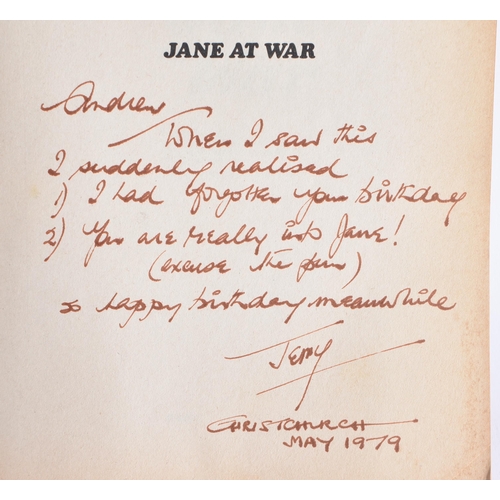 JANE AT WAR
Andrew
When I saw this
I suddenly realised
1) I had forgotten your birthday
2) You are really into Jane!
(excuse the pun)
so happy birthday meanwhile
Jerry
CHRISTCHURCH
MAY 1979